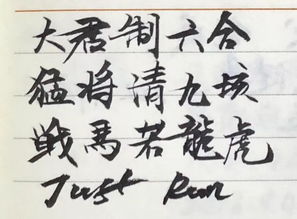 大君制六合
猛将清九垓
戦馬若龍虎
Just Run